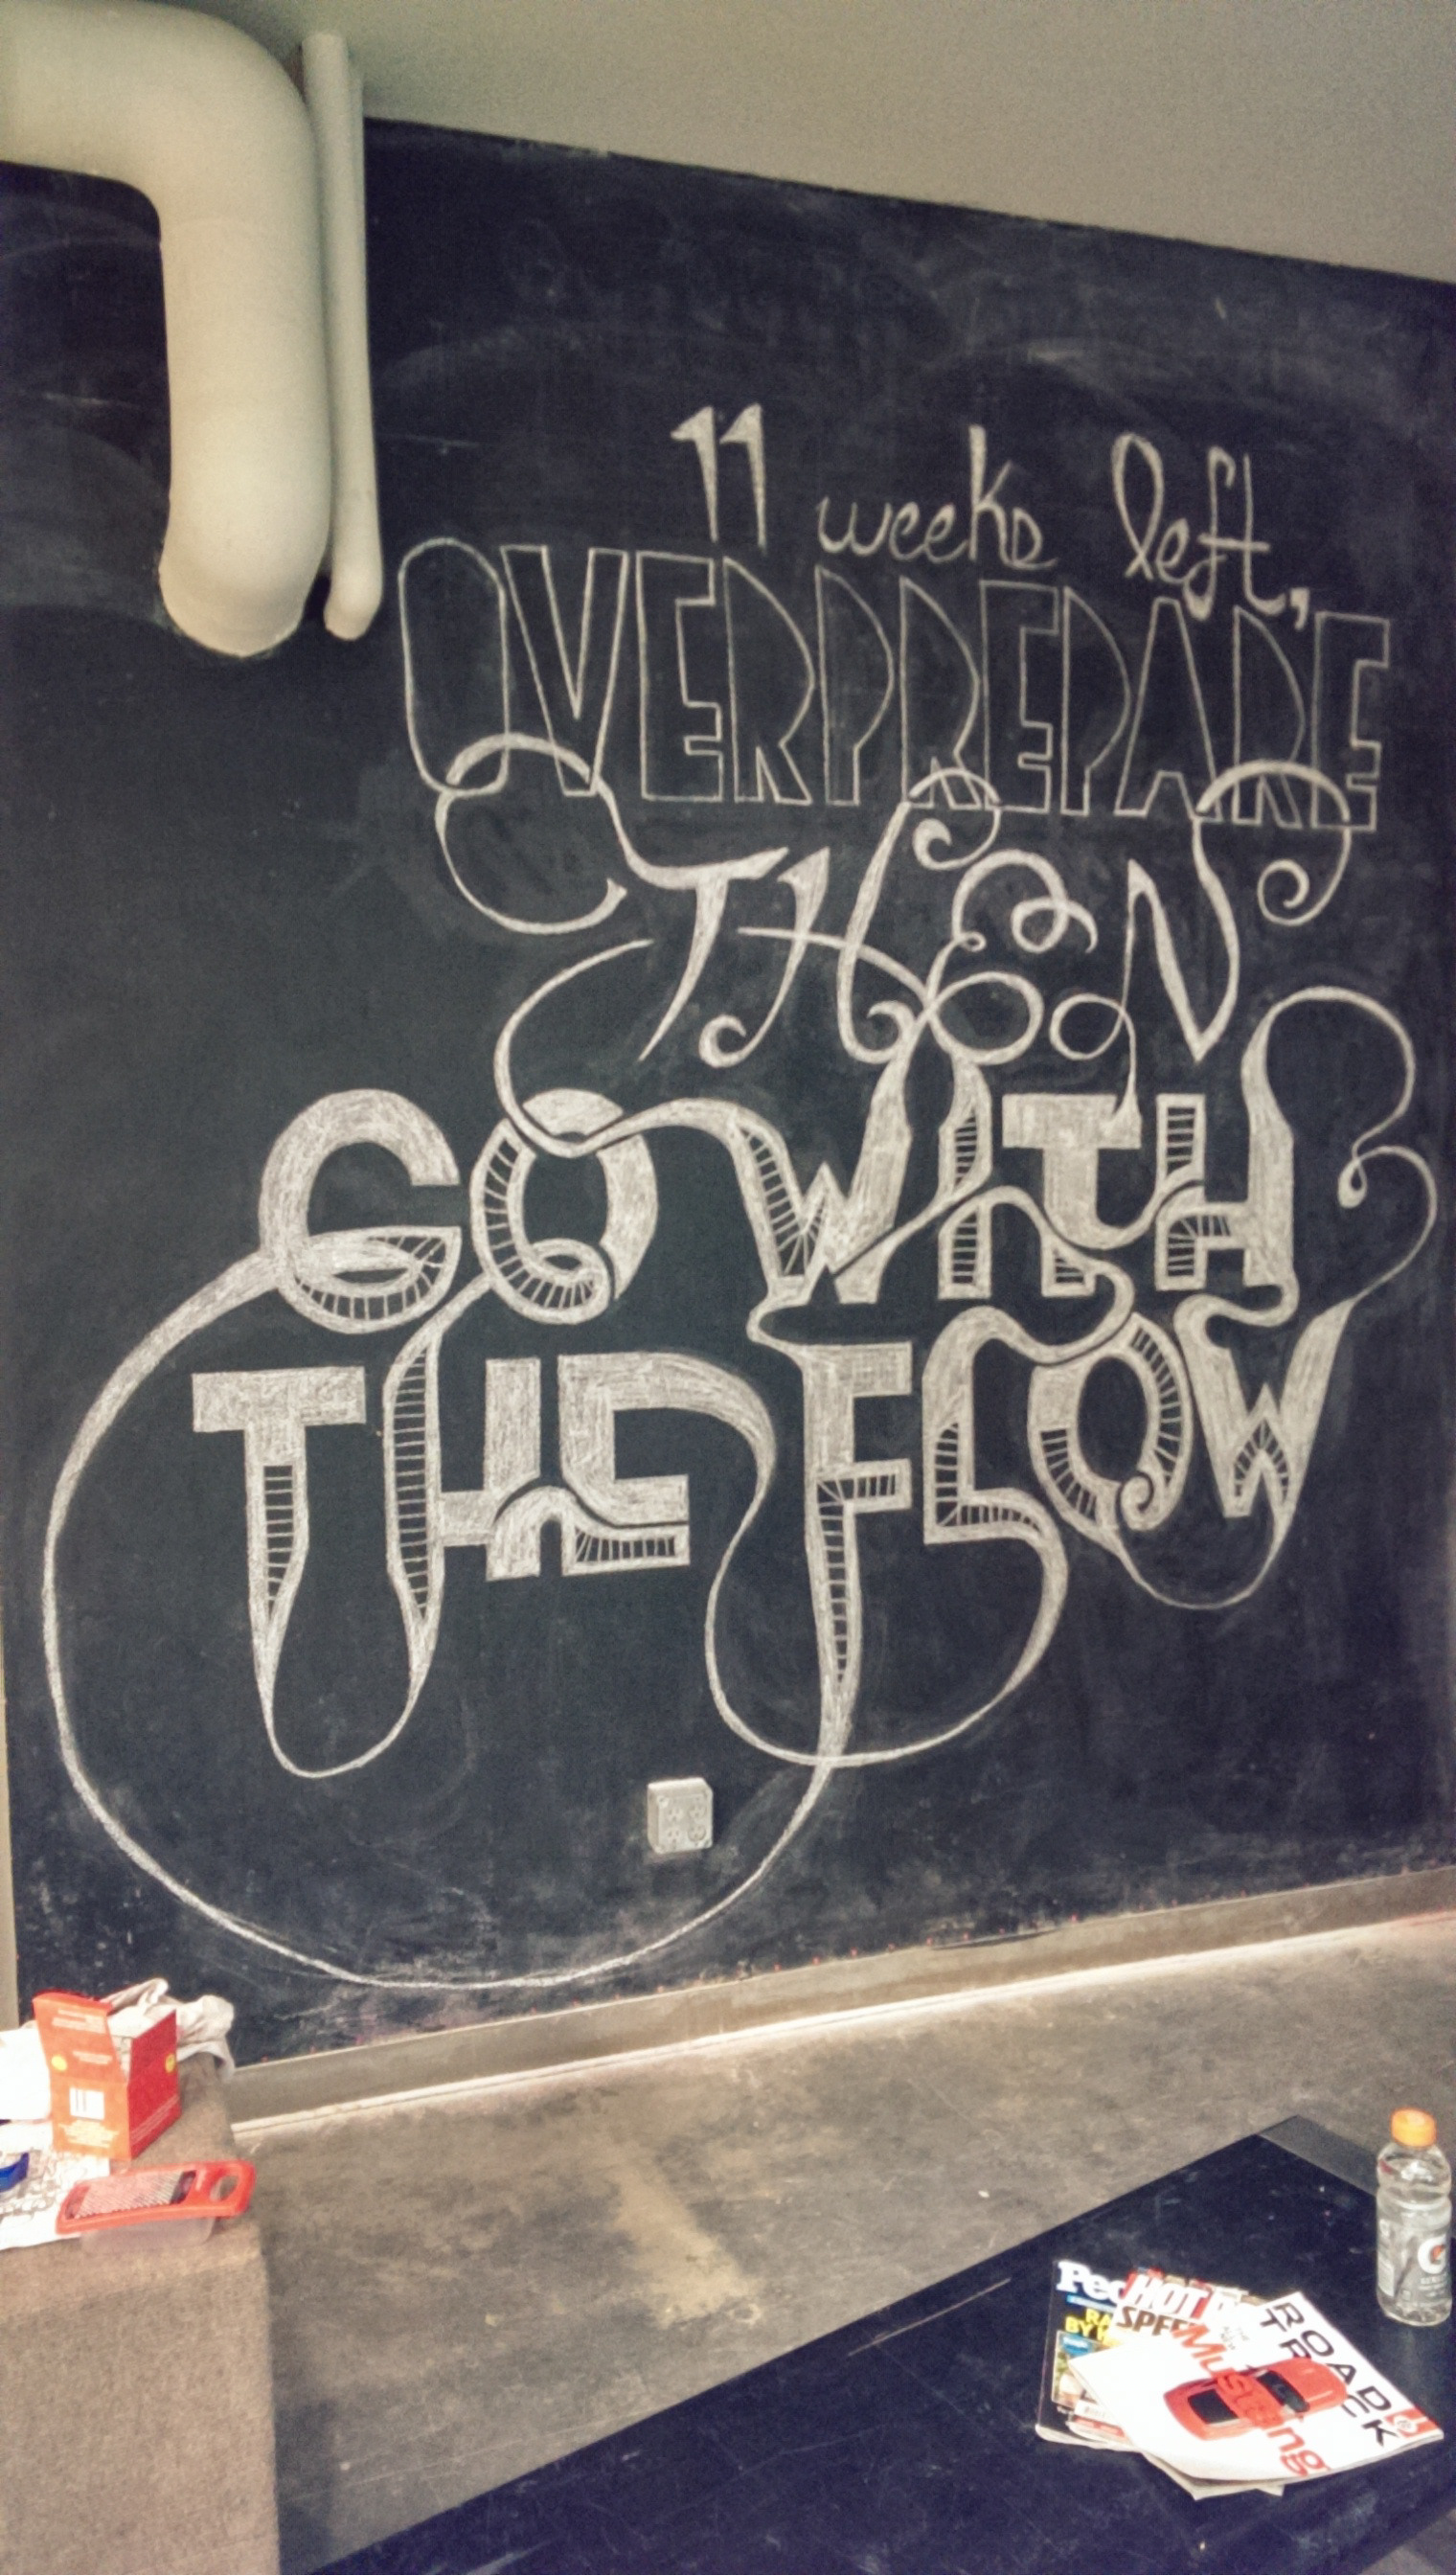 11 weeks left,
OVERPREPARE
THEN
GO WITH
THE FLOW
HOT
ROAD
TRACK
Mustang
G